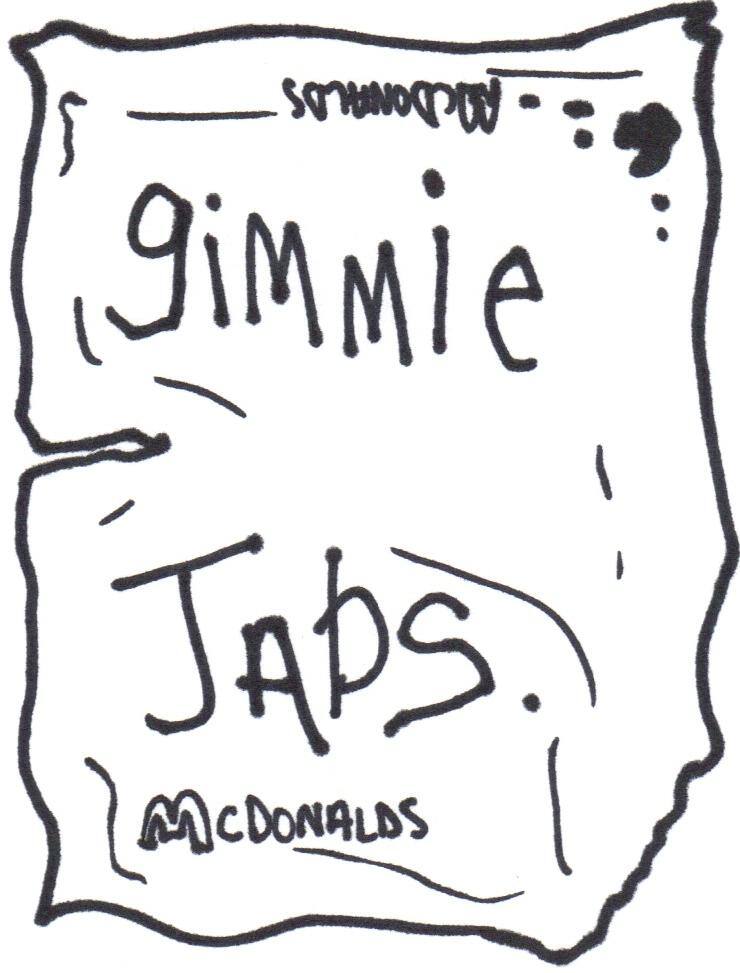 McDONALDS
gimmie
McDONALDS